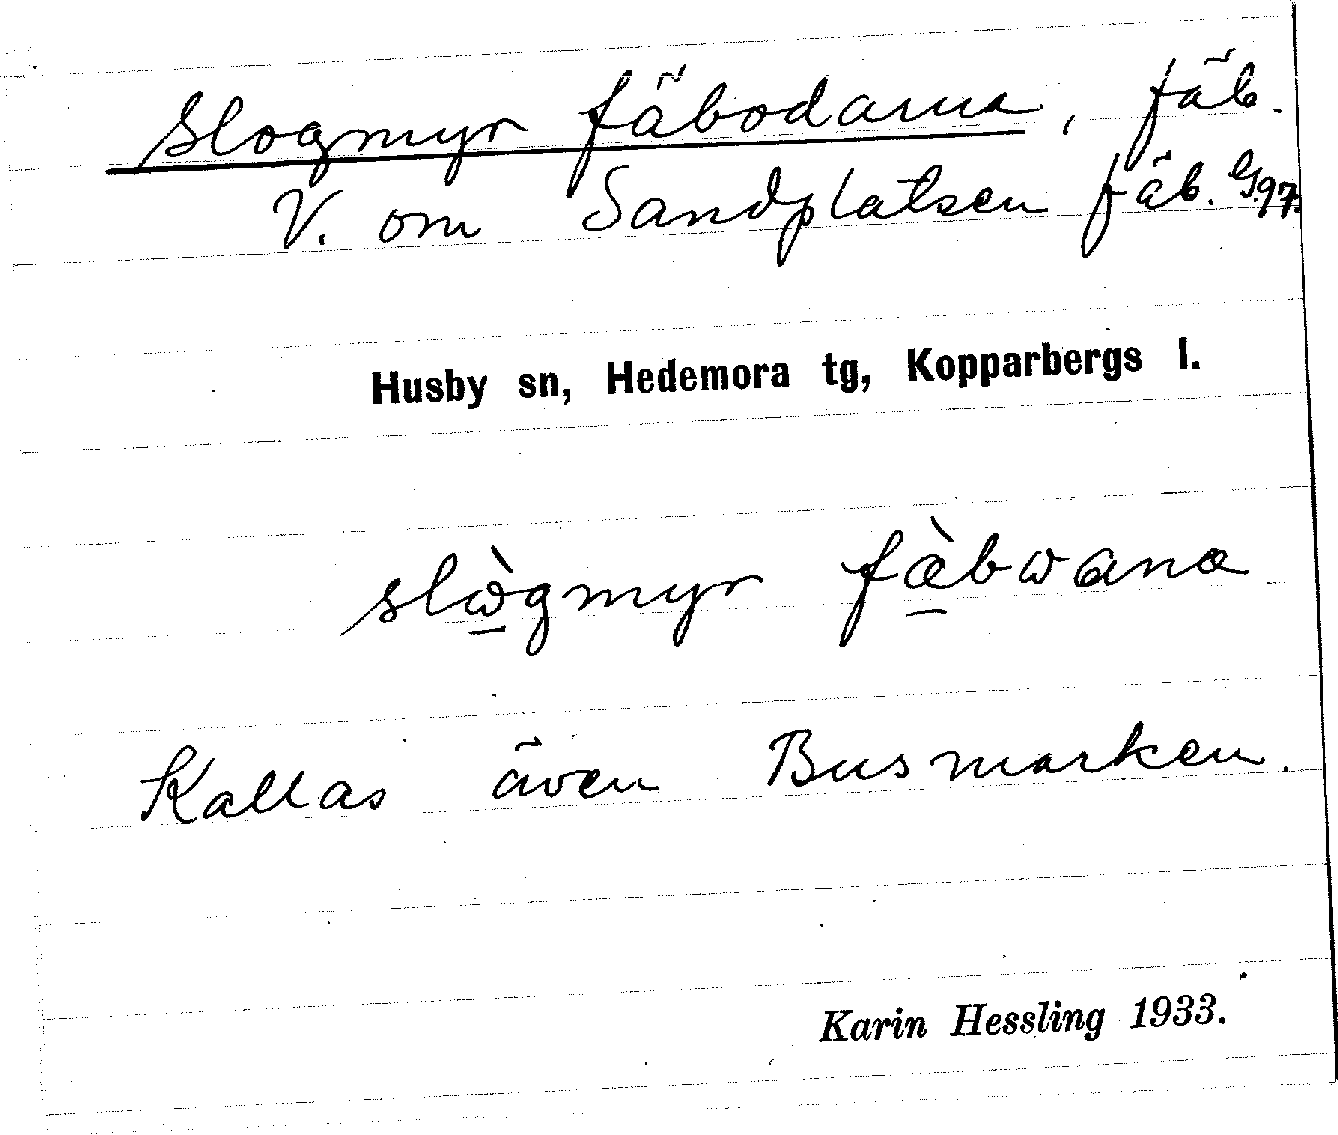 Slogmyr fäbodarna, fäb.
V. om Sandplatsen fäb. G.97.
Husby sn, Hedemora tg, Kopparbergs l.
slὼ̱gmyr fæ̱̀bωana
Kallas även Busmarken.
Karin Hessling 1933.